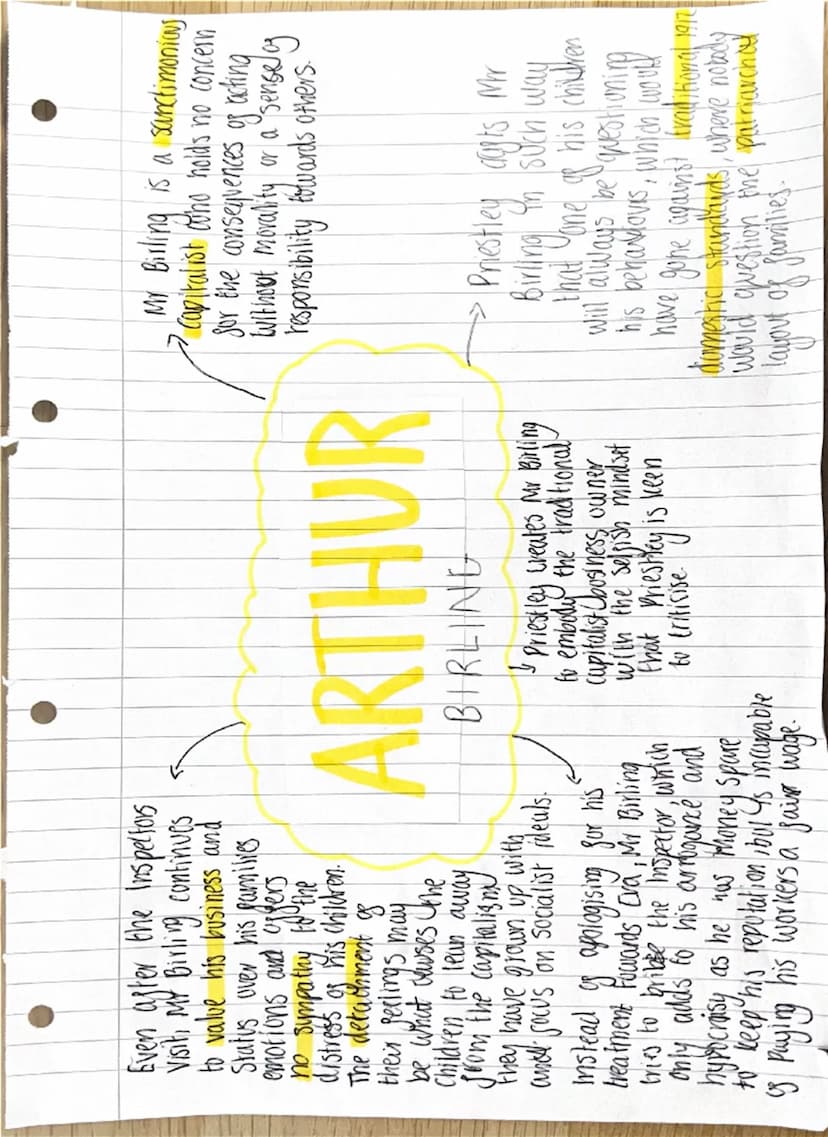 Even after the Inspectors
visit, Mr Birling continues
to value his business and
status over his families
emotions and offers
no sympathy to the
distress of his children.
The detachment of
their feelings may
be what causes the
children to lean away
from the capitalism
they have grown up with
and focus on socialist ideals.
Mr Birling is a sanctimonious
capitalist who holds no concern
for the consequences of acting
without morality or a sense of
responsibility towards others.
ARTHUR
BIRLING
Instead of apologising for his
treatment towards Eva, Mr Birling
tries to bribe the Inspector, which
only adds to his arrogance and
hypocrisy as he has money spare
to keep his reputation, but is incapable
of paying his workers a fair wage.
Priestley creates Mr Birling
to embody the traditional
capitalist business owner
with the selfish mindset
that Priestley is keen
to criticise.
Priestley crafts Mr
Birling in such way
that one of his children
will always be questioning
his behaviours, which would
have gone against traditional 1912
domestic standards, where nobody
would question the patriarchal
layout of families.